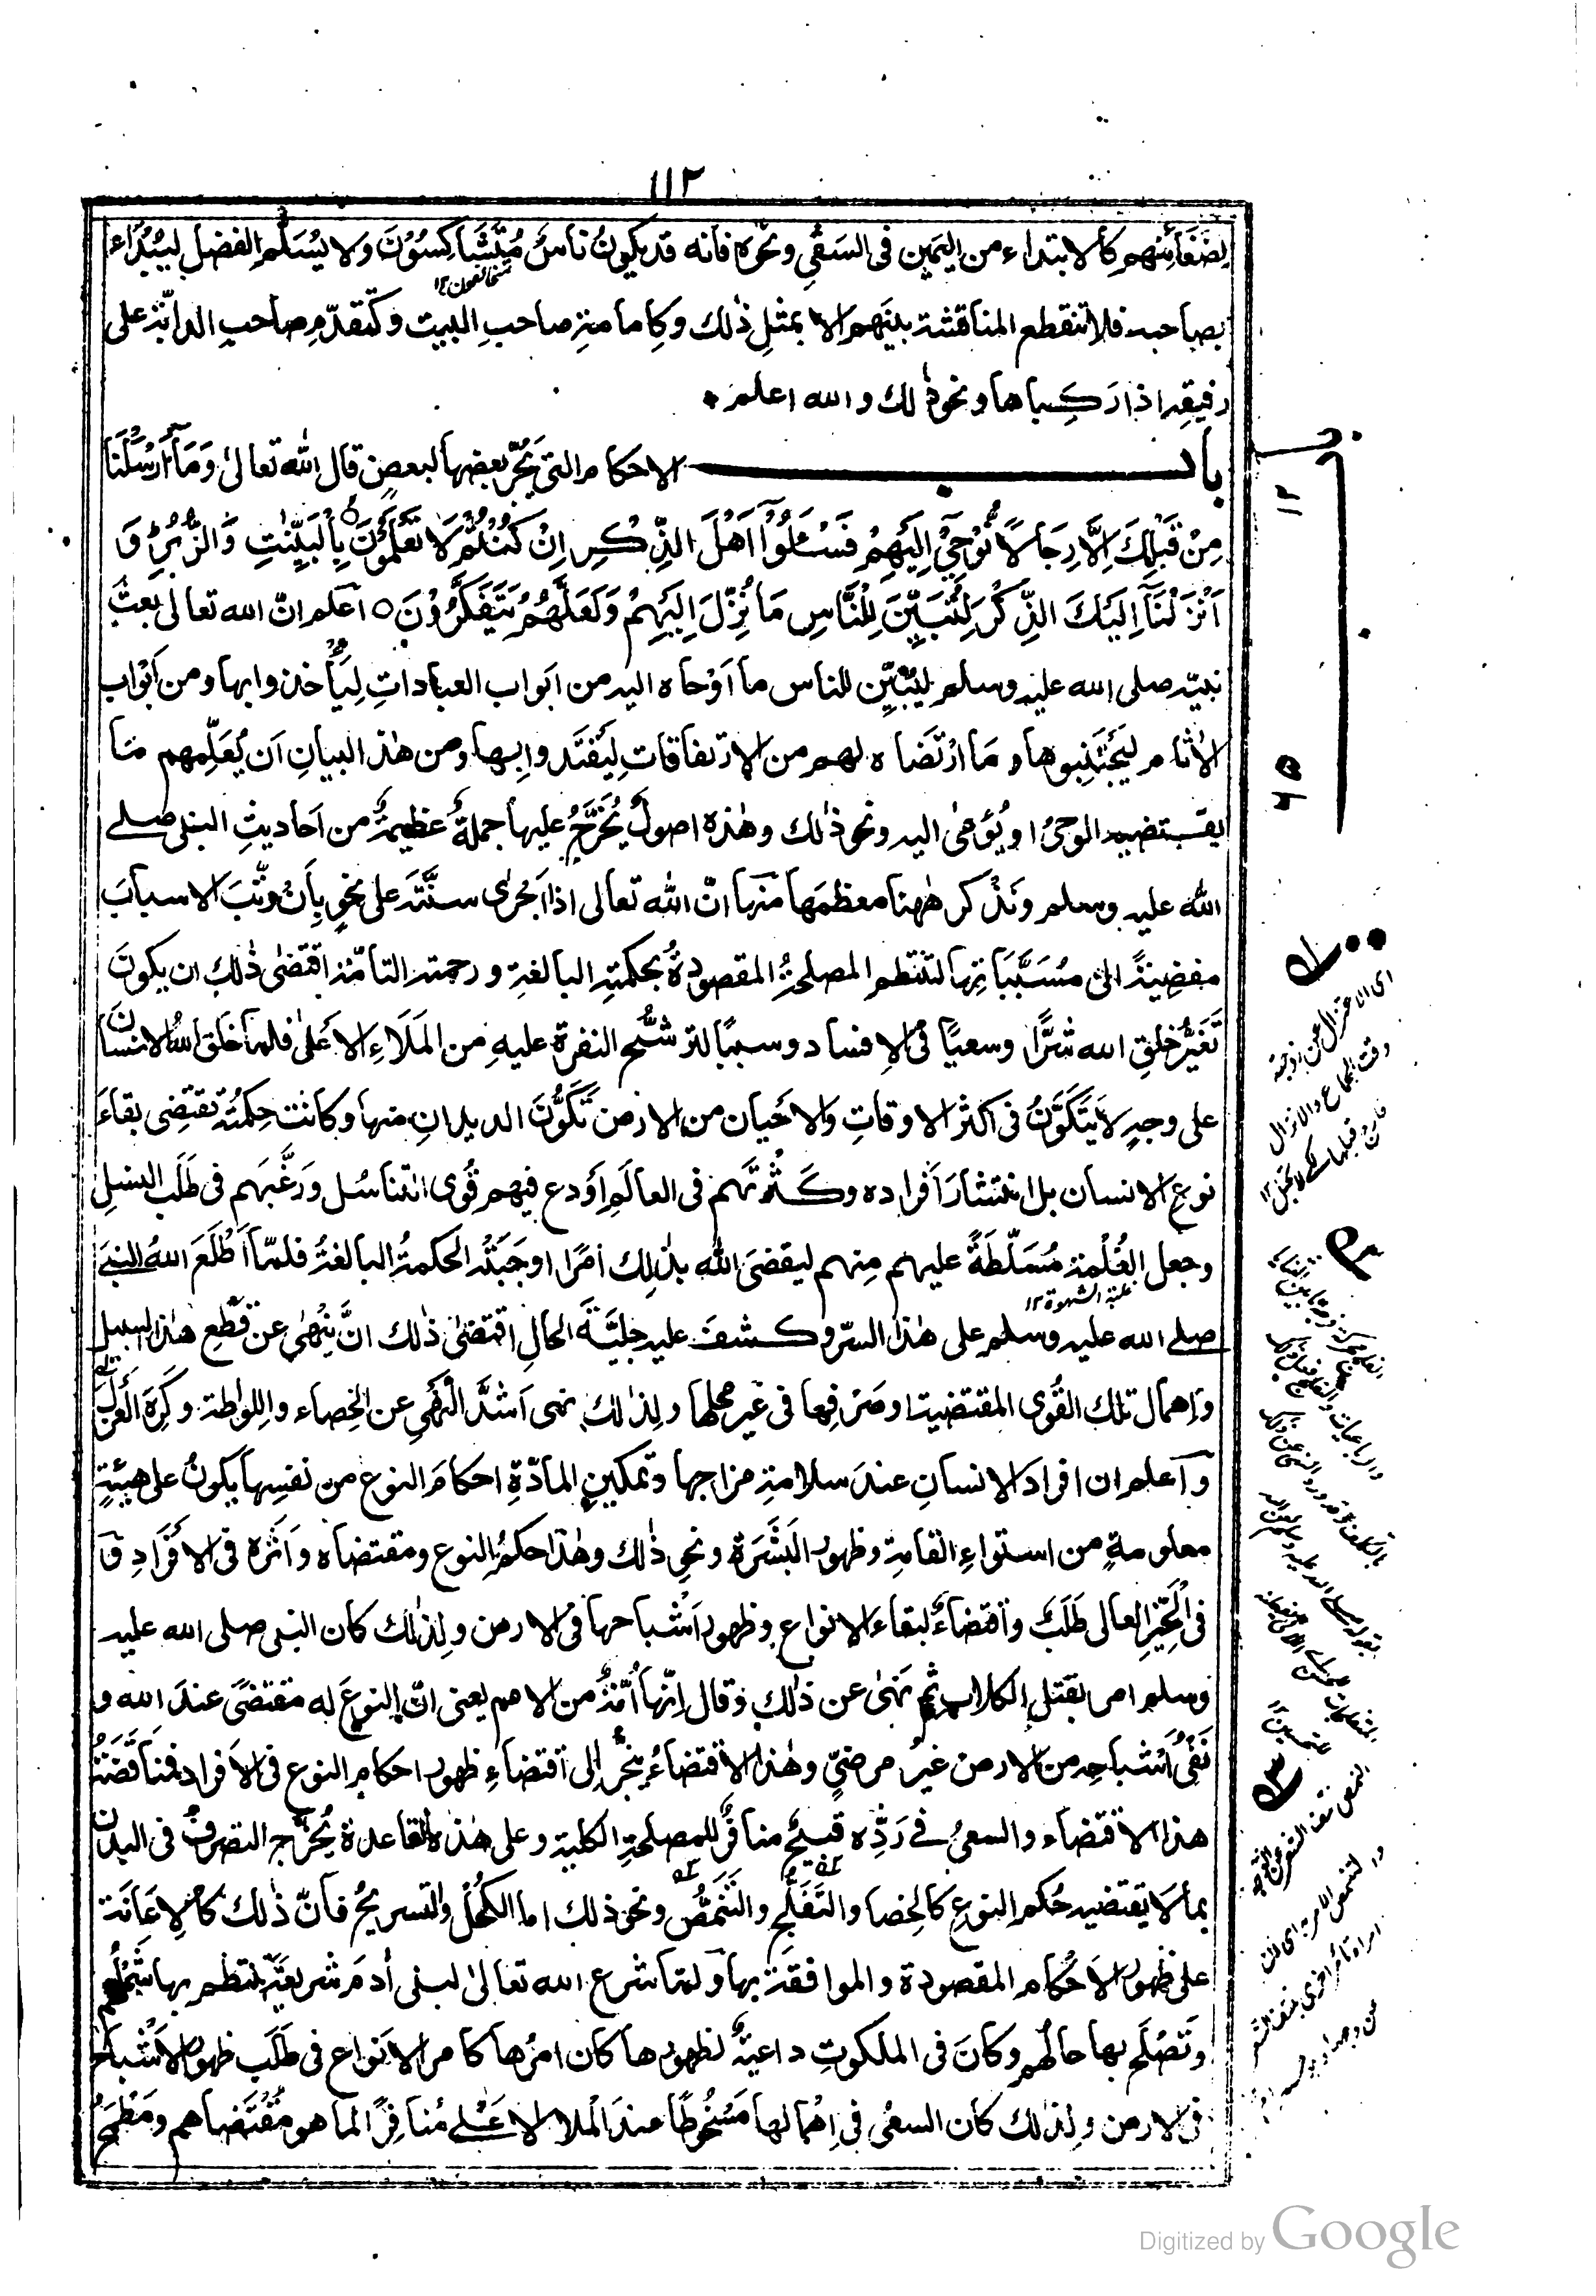 ١١٢
لضغائنهم كالابتداء من اليمين فى السقى ونحوه فانه قد يكونُ ناسٌ مُتَشَاكِسُوْنَ ولا يُسَلَّم الفضل ليُبْدَاء
متخالفون ١٢
بصاحبه فلا تنقطع المناقشة بينهم الا بمثلِ ذٰلك وكامامةِ صاحبِ البيت وكتقدّم صاحبِ الدابّة على
رفيقه اذا رَكِباها ونحو ذٰلك والله اعلم ٭
باب الاحكام التى يَجُرّ بعضها لبعض قال الله تعالىٰ وَمَا اَرْسَلْنَا
مِنْ قَبْلِكَ اِلَّا رِجَالًا نُّوْحِىْٓ اِلَيْهِمْ فَسْـَٔلُوْٓا اَهْلَ الذِّكْرِ اِنْ كُنْتُمْ لَا تَعْلَمُوْنَ ۝ بِالْبَيِّنٰتِ وَالزُّبُرِ وَ
اَنْزَلْنَآ اِلَيْكَ الذِّكْرَ لِتُبَيِّنَ لِلنَّاسِ مَا نُزِّلَ اِلَيْهِمْ وَلَعَلَّهُمْ يَتَفَكَّرُوْنَ ۝ اعلم انّ الله تعالى بعث
نبيّه صلى الله عليه وسلم ليُبَيِّن للناس ما اَوْحاه اليه من ابواب العباداتِ لِيَأْخذوا بها ومن اَبْواب
الاٰثام ليَجْتَنِبوها وما ارْتَضَاه لهم من الارتفاقات لِيَقْتَدوا بها ومن هٰذ البيانِ اَن يُعَلِّمهم مَا
يقتضيه الوحىُ او يُؤْمىٰ اليه ونحو ذٰلك وهٰذه اصولٌ يُخَرَّجُ عليها جملةٌ عظيمةٌ من اَحاديثِ النبى صلے
الله عليه وسلم ونَذْكر هٰهنا معظمَها منها انّ الله تعالى اذا اَجْرٰى سنّتَه على نحوٍ بِاَنْ رتَّبَ الاسبابَ
مفضيةً الىٰ مُسَبَّبَاتِها لتنتظم المصلحةُ المقصودةُ بحكمتهِ البالغةِ ورحمته التامّة اقتضىٰ ذٰلك ان يكونَ
تَغْيِيْرُ خلقِ الله شرًّا وسعيًا فى الافساد وسببًا لترشُّح النفرة عليهِ من المَلَاءِ الاَعلىٰ فلما خَلَق اللهُ الانسانَ
على وجهٍ لا يَتَكَوَّنُ فى اكثر الاوقاتِ والاَحْيان من الارض تَكَوُّنَ الديدانِ منها وكانت حِكمتُه تقتضِى بقاءَ
نوعِ الانسان بل انتشارَ اَفراده وكَثْرَتَهم فى العالَم اَوْدع فيهم قُوَى التناسُل ورَغَّبَهم فى طَلَب النسلِ
وجعل الغُلْمة مُسَلَّطَةً عليهم مِنهم ليقضىَ اللهُ بذٰلك اَمرًا اوجَبَتْه الحكمةُ البالغةُ فلمّا اَطْلَعَ اللهُ النبىَّ
غلبة الشهوة ١٢
صلے الله عليه وسلم على هٰذا السرّ وكشفَ عليه جليّةَ الحالِ اقتضىٰ ذٰلك انْ يَنْهىٰ عن قَطْعِ هٰذا السبيل
واِهمال تلك القُوٰى المقتضيةِ او صَرْفِها فى غير محلها ولذٰلك نهى اَشدَّ النَّهْىِ عن الخِصاء واللِواطة وكَرِهَ العَزْلَ
واعلم ان افراد الانسانِ عند سلامتِ مزاجها وتمكينِ المادّةِ احكامَ النوع من نفسها يكونُ على هيئةٍ
معلومةٍ من استواءِ القامةِ وظهور البَشَرَةِ ونحوِ ذٰلك وهٰذا حكمُ النوع ومقتضاه واَثَره فى الاَفْرَادِ وَ
فى الحَيِّزِ العالى طَلَبٌ واقتضاءٌ لبقاء الانواع وظهور اَشْباحها فى الارض ولذٰلك كان النبى صلى الله عليه
وسلم امر بقتل الكلاب ثم نهىٰ عن ذٰلك وقال اِنّها اُمّةٌ من الامم يعنى انّ النوعَ له مقتضىً عند الله و
نَفْىُ اَشباحِه من الارض غيرُ مرضىٍّ وهٰذا الاقتضاءُ ينجرُّ الى اقتضاءِ ظهور احكام النوع فى الاَفراد فمناقَضَتُهُ
هذا الاقتضاء والسعىُ فى رَدِّه قبيحٌ منافرٌ للمصلحةِ الكلية وعلى هٰذه القاعدة يُخرّج التصرفُ فى البدن
بما لا يقتضيه حُكم النوعِ كالخِصا والتَّفَلُّجِ والتَّنَمُّصِ ونحو ذلك اما الكُحْل والتسريحُ فانّ ذٰلك كالاِعَانَة
على ظهور الاَحْكام المقصودة والموافقة بها ولمّا شرع الله تعالىٰ لبنى اٰدم شريعةً ينتظم بها شَمْلُهم
وتَصْلُح بها حالُهم وكانَ فى الملكوتِ داعيةٌ لظهورها كان امرُها كامر الانواع فى طَلَب ظهور الاَشْباحِ
فى الارض ولذٰلك كان السعْىُ فى اِهْمالها مَسْخُوطًا عندَ الملا الاعلے مُنافِرًا لما هو مُقْتَضاهم ومَطْمَحُ
اى الاعتزال عن زوجته
وقت الجماع والانزال
خارج قبلها لئلا تحبل ١٢
Digitized by Google